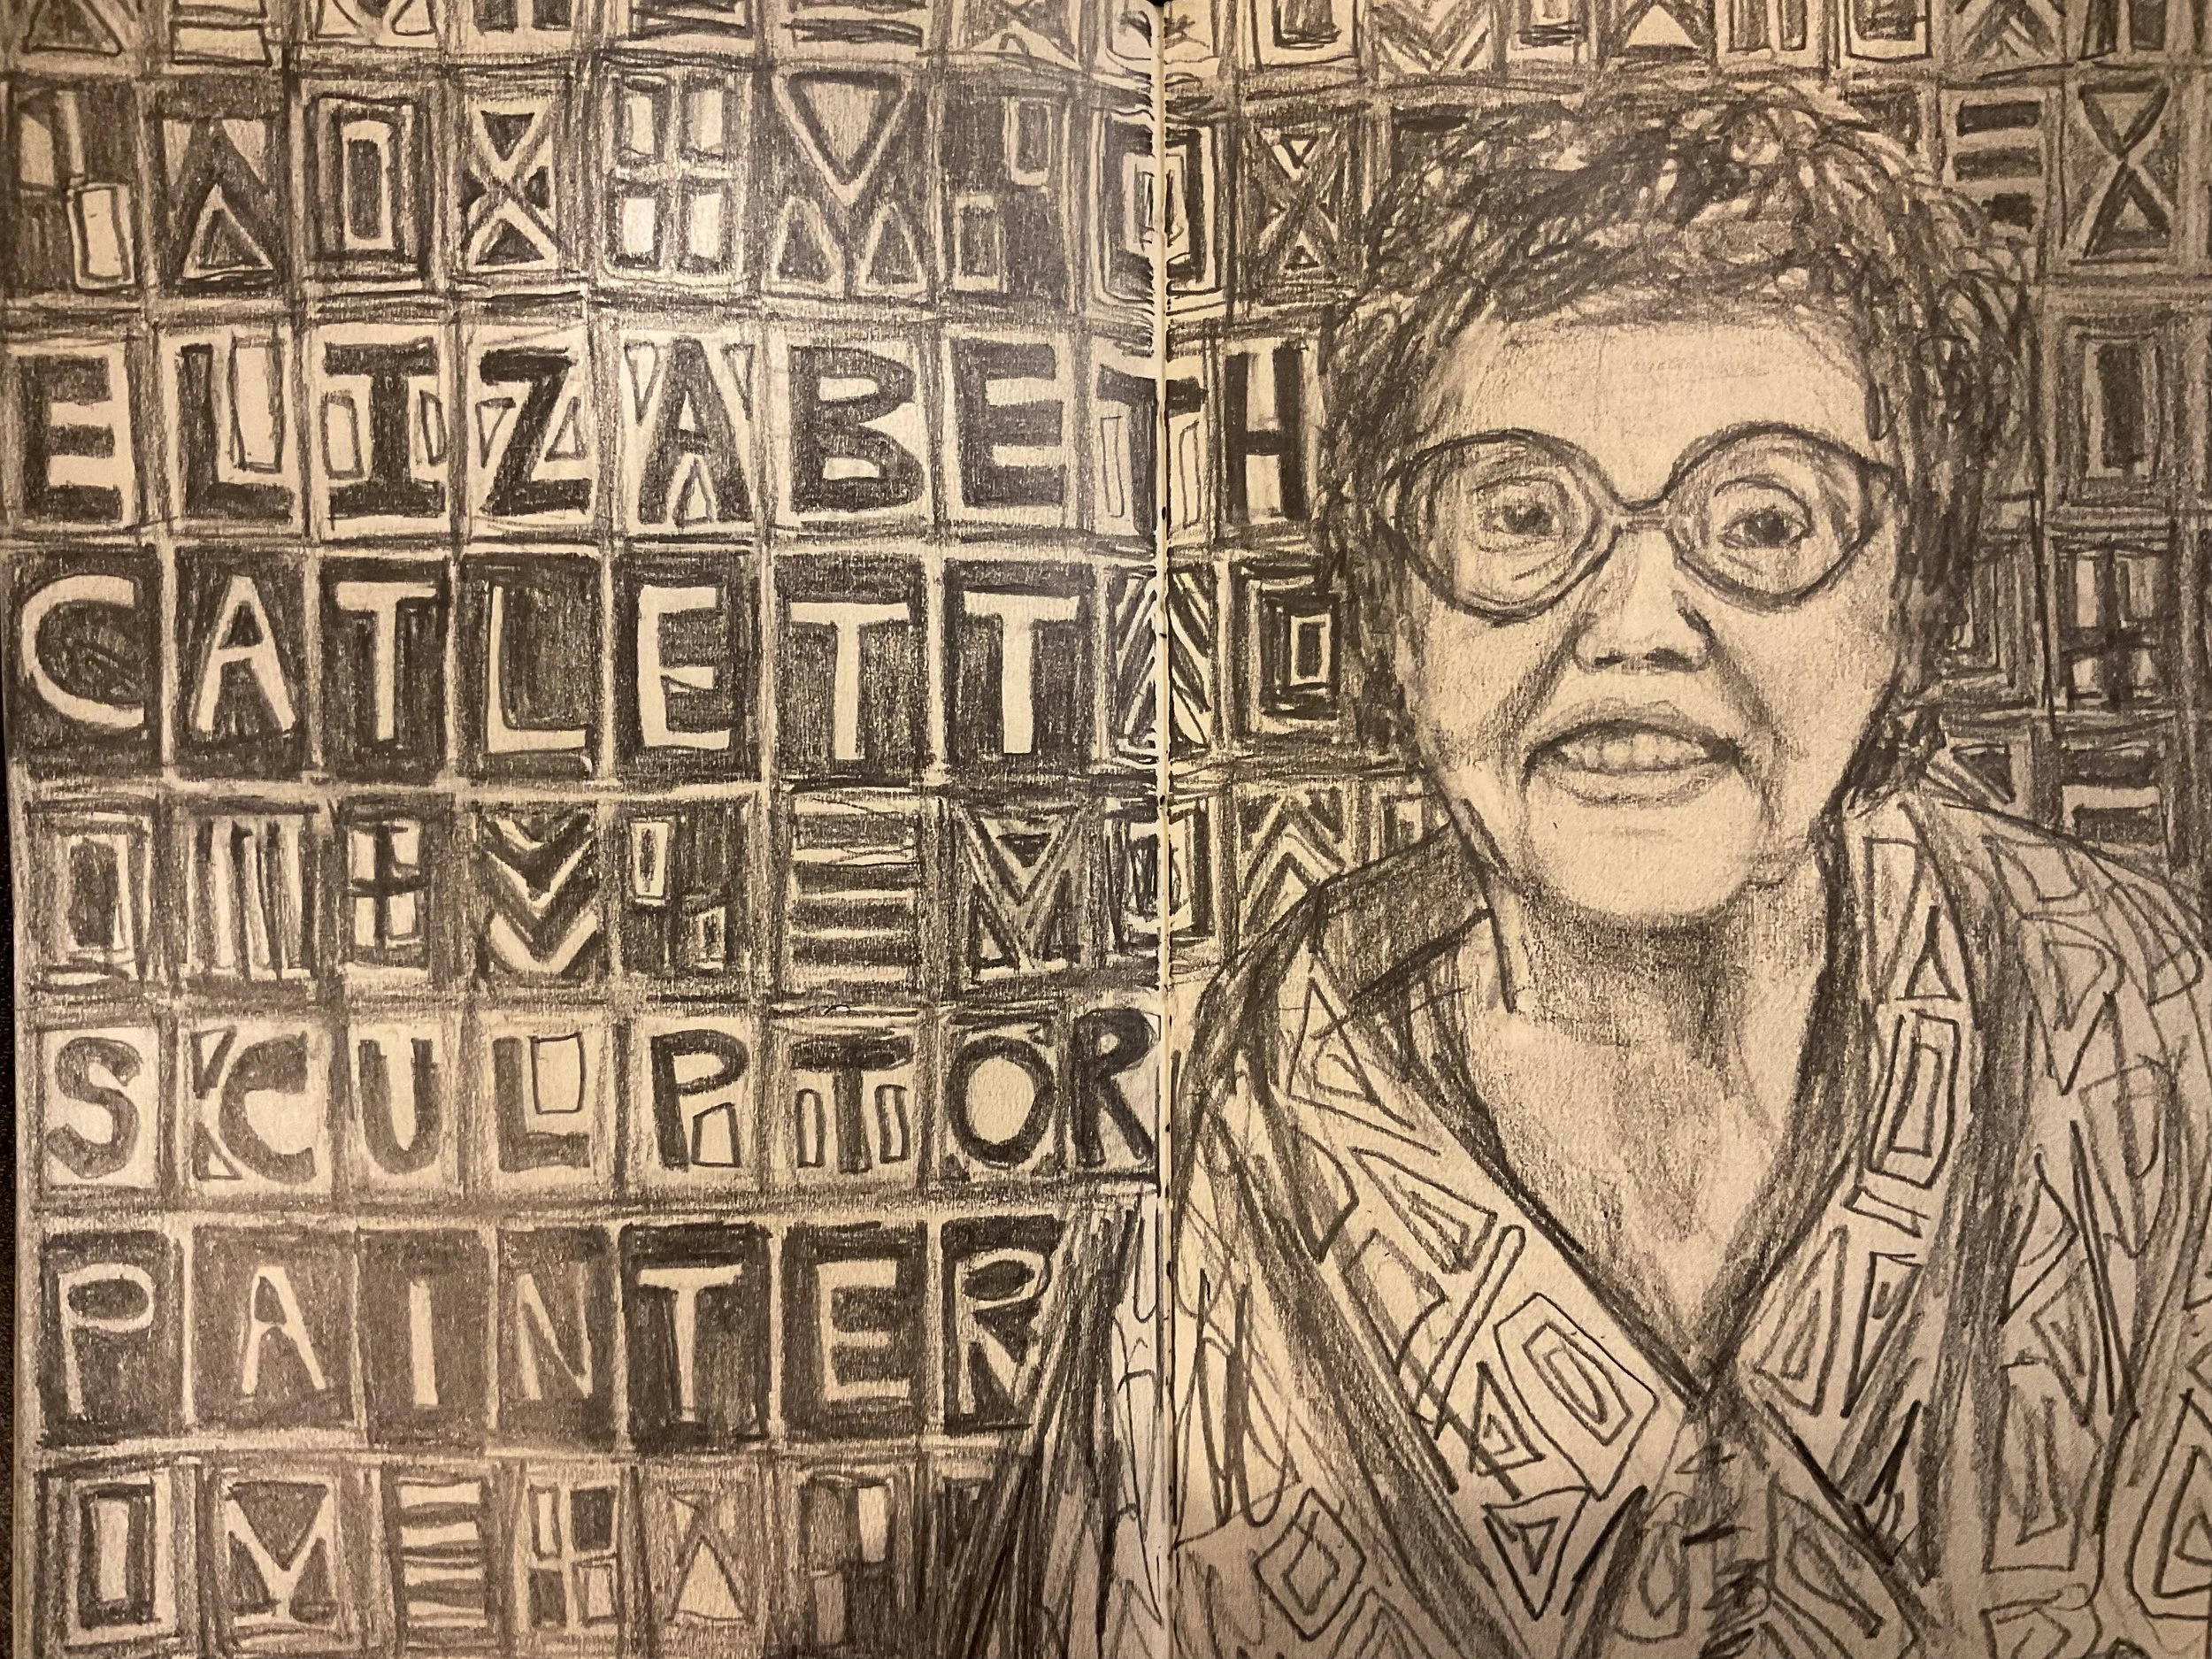 ELIZABETH
CATLETT
SCULPTOR
PAINTER